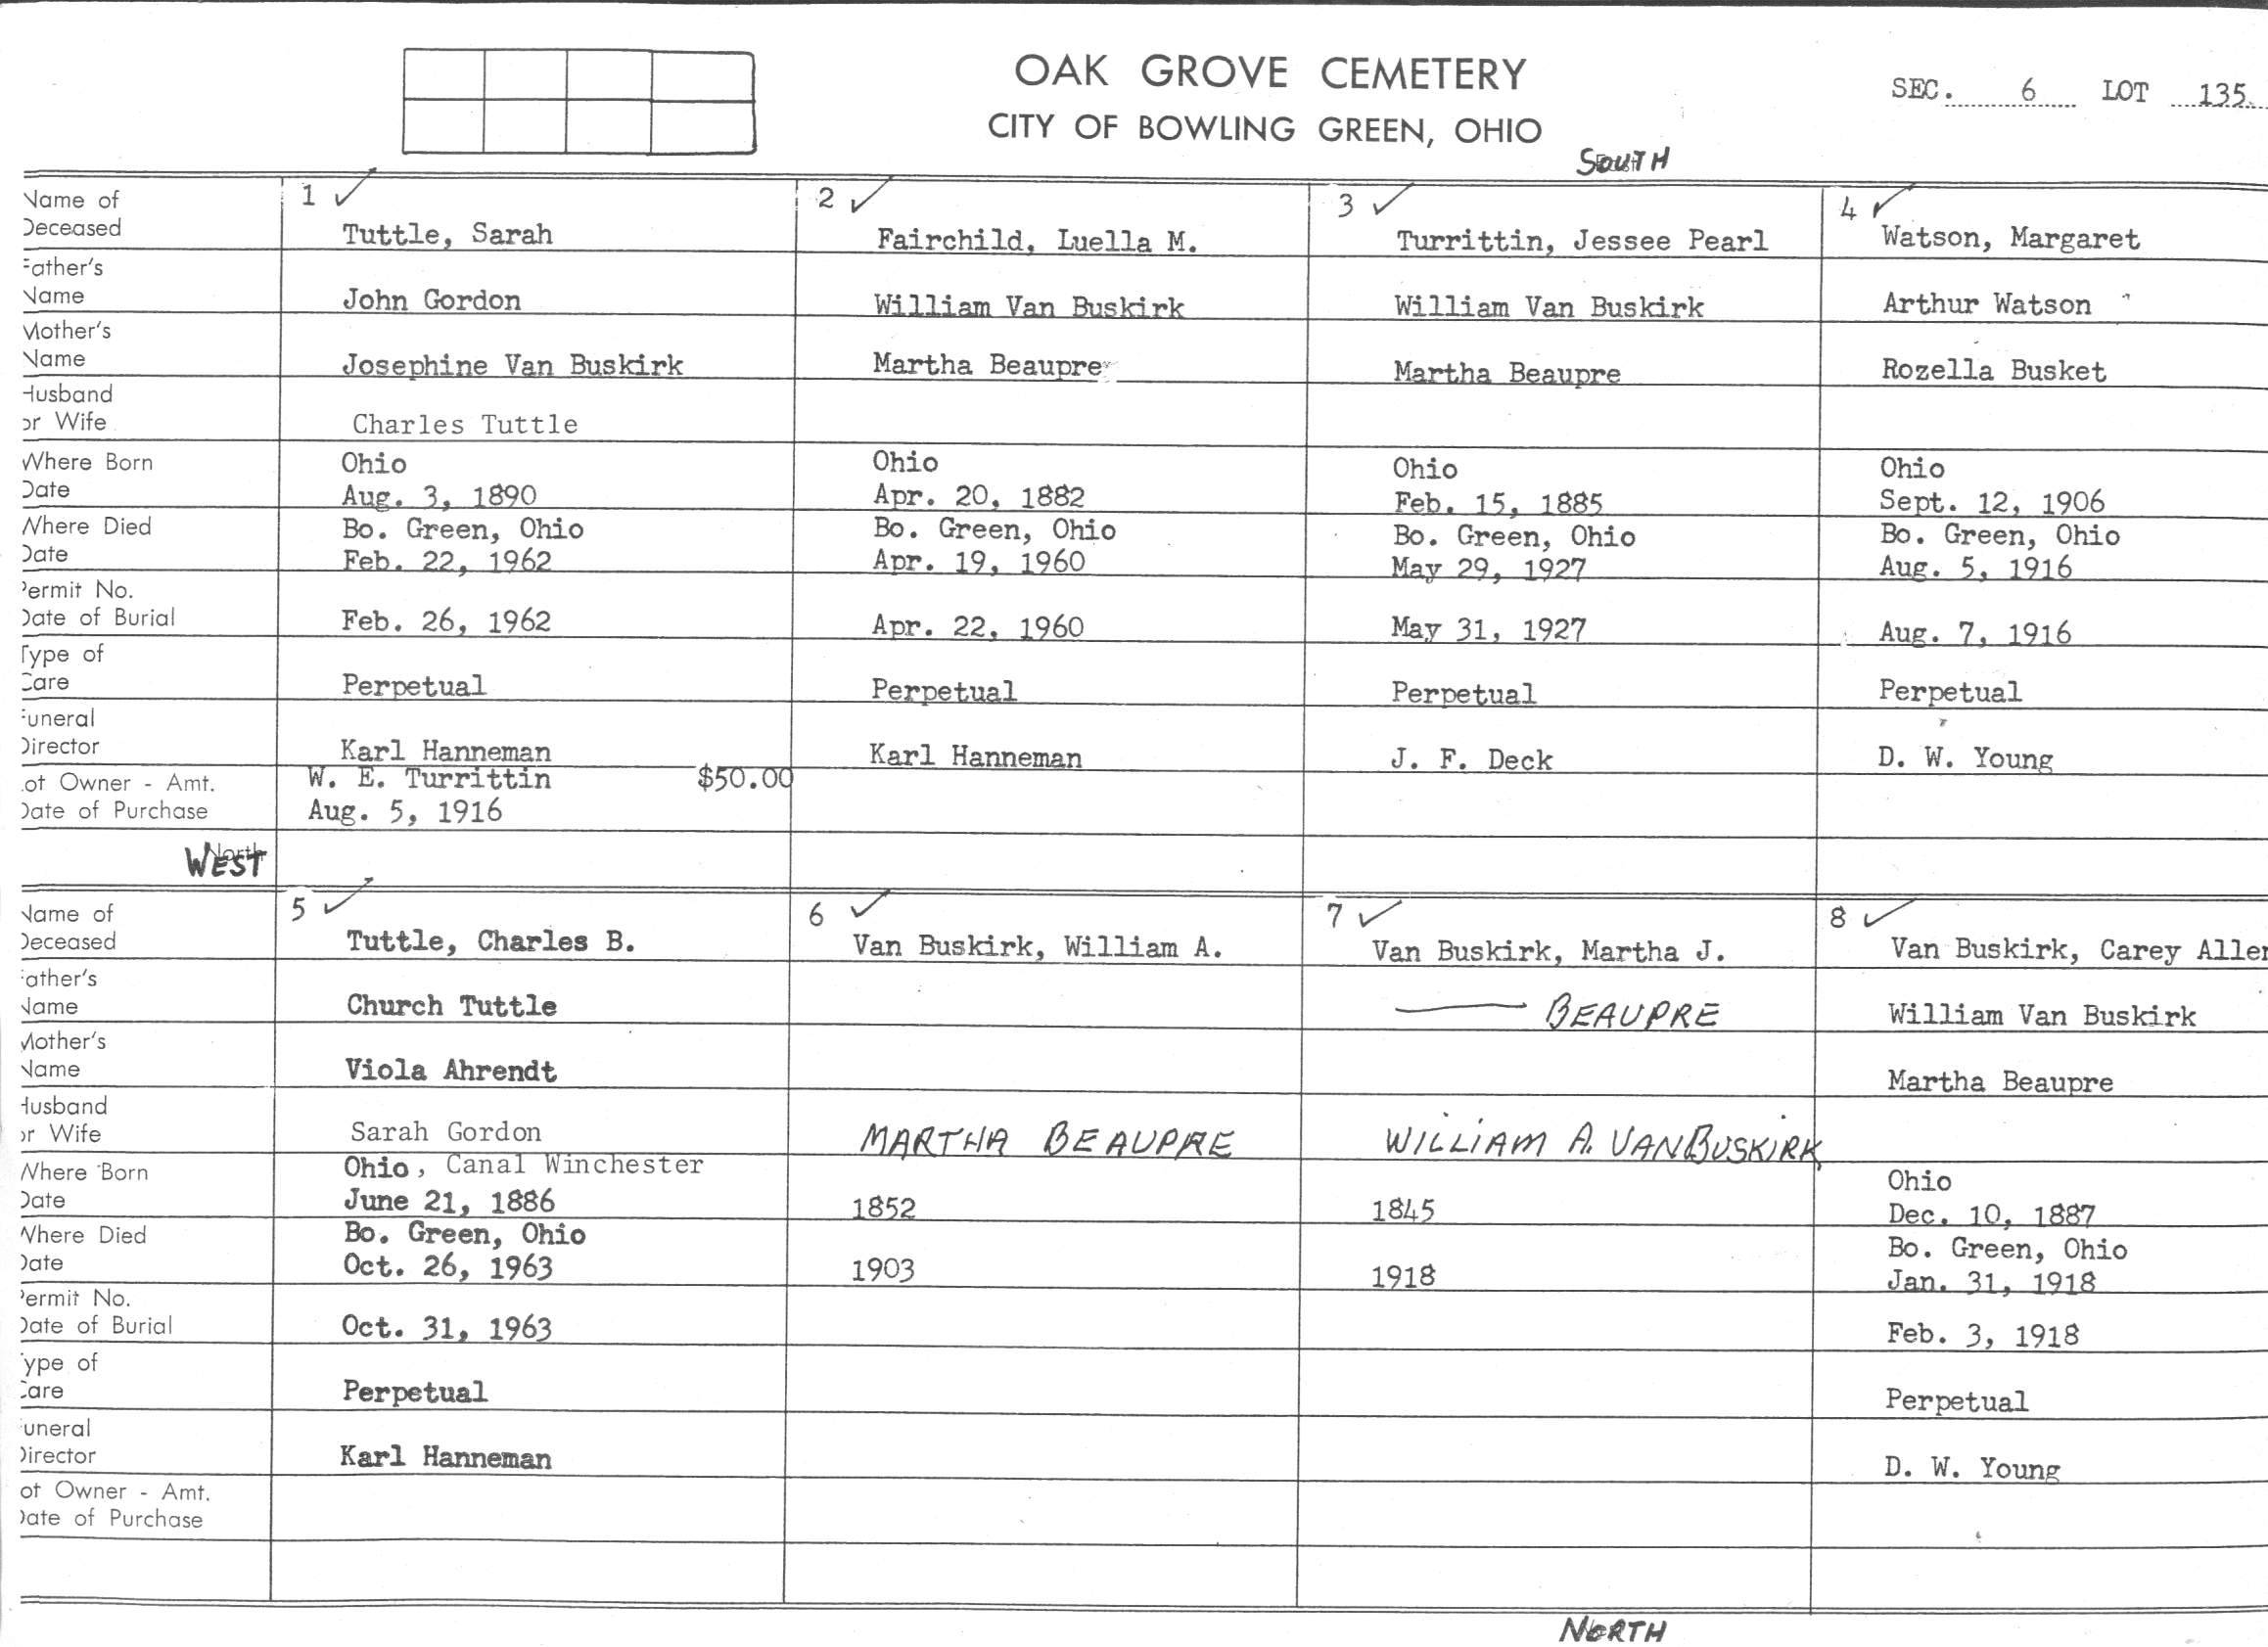 OAK GROVE CEMETERY
CITY OF BOWLING GREEN, OHIO
SEC. 6 LOT 135
SOUTH
Name of
Deceased
1 ✓ Tuttle, Sarah
2 ✓ Fairchild, Luella M.
3 ✓ Turrittin, Jessee Pearl
4 ✓ Watson, Margaret
Father's
Name
John Gordon
William Van Buskirk
William Van Buskirk
Arthur Watson
Mother's
Name
Josephine Van Buskirk
Martha Beaupre
Martha Beaupre
Rozella Busket
Husband
or Wife
Charles Tuttle
Where Born
Date
Ohio
Aug. 3, 1890
Ohio
Apr. 20, 1882
Ohio
Feb. 15, 1885
Ohio
Sept. 12, 1906
Where Died
Date
Bo. Green, Ohio
Feb. 22, 1962
Bo. Green, Ohio
Apr. 19, 1960
Bo. Green, Ohio
May 29, 1927
Bo. Green, Ohio
Aug. 5, 1916
Permit No.
Date of Burial
Feb. 26, 1962
Apr. 22, 1960
May 31, 1927
Aug. 7, 1916
Type of
Care
Perpetual
Perpetual
Perpetual
Perpetual
Funeral
Director
Karl Hanneman
Karl Hanneman
J. F. Deck
D. W. Young
Lot Owner - Amt.
Date of Purchase
W. E. Turrittin $50.00
Aug. 5, 1916
North
WEST
Name of
Deceased
5 ✓ Tuttle, Charles B.
6 ✓ Van Buskirk, William A.
7 ✓ Van Buskirk, Martha J.
8 ✓ Van Buskirk, Carey Allen
Father's
Name
Church Tuttle
— BEAUPRE
William Van Buskirk
Mother's
Name
Viola Ahrendt
Martha Beaupre
Husband
or Wife
Sarah Gordon
MARTHA BEAUPRE
WILLIAM A. VANBUSKIRK
Where Born
Date
Ohio, Canal Winchester
June 21, 1886
1852
1845
Ohio
Dec. 10, 1887
Where Died
Date
Bo. Green, Ohio
Oct. 26, 1963
1903
1918
Bo. Green, Ohio
Jan. 31, 1918
Permit No.
Date of Burial
Oct. 31, 1963
Feb. 3, 1918
Type of
Care
Perpetual
Perpetual
Funeral
Director
Karl Hanneman
D. W. Young
Lot Owner - Amt.
Date of Purchase
NORTH